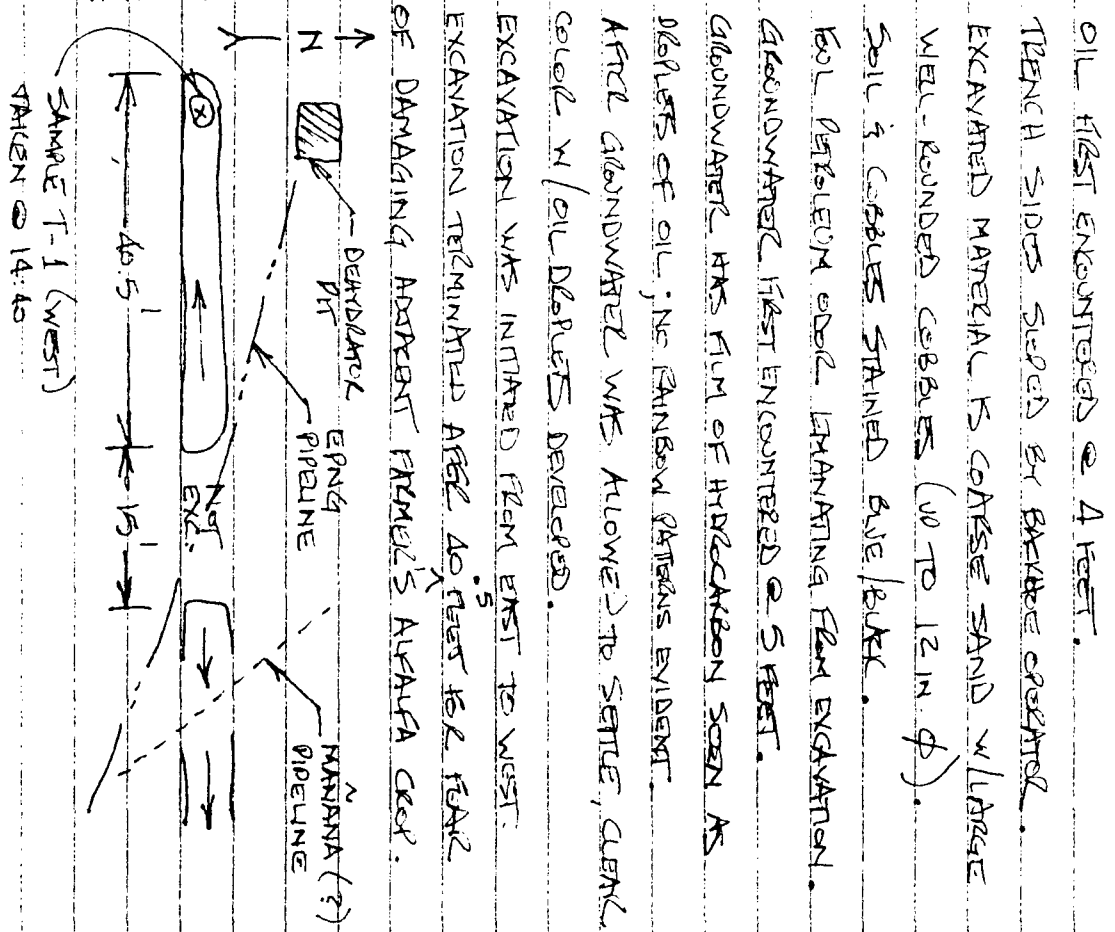 OIL FIRST ENCOUNTERED @ 4 FEET.
TRENCH SIDES SLOPED BY BACKHOE OPERATOR.
EXCAVATED MATERIAL IS COARSE SAND W/LARGE
WELL-ROUNDED COBBLES (UP TO 12 IN φ).
SOIL & COBBLES STAINED BLUE/BLACK.
FOUL PETROLEUM ODOR EMANATING FROM EXCAVATION.
GROUNDWATER FIRST ENCOUNTERED @ 5 FEET.
GROUNDWATER HAS FILM OF HYDROCARBON SEEN AS
DROPLETS OF OIL; NO RAINBOW PATTERNS EVIDENT.
AFTER GROUNDWATER WAS ALLOWED TO SETTLE, CLEAR
COLOR W/OIL DROPLETS DEVELOPED.
EXCAVATION WAS INITIATED FROM EAST TO WEST.
EXCAVATION TERMINATED AFTER 40.5 FEET FOR FEAR
OF DAMAGING ADJACENT FARMER'S ALFALFA CROP.
N
DEHYDRATOR
PIT
EPNG
PIPELINE
MAÑANA (?)
PIPELINE
NOT
EXC.
X
40.5'
15'
SAMPLE T-1 (WEST)
TAKEN @ 14:40